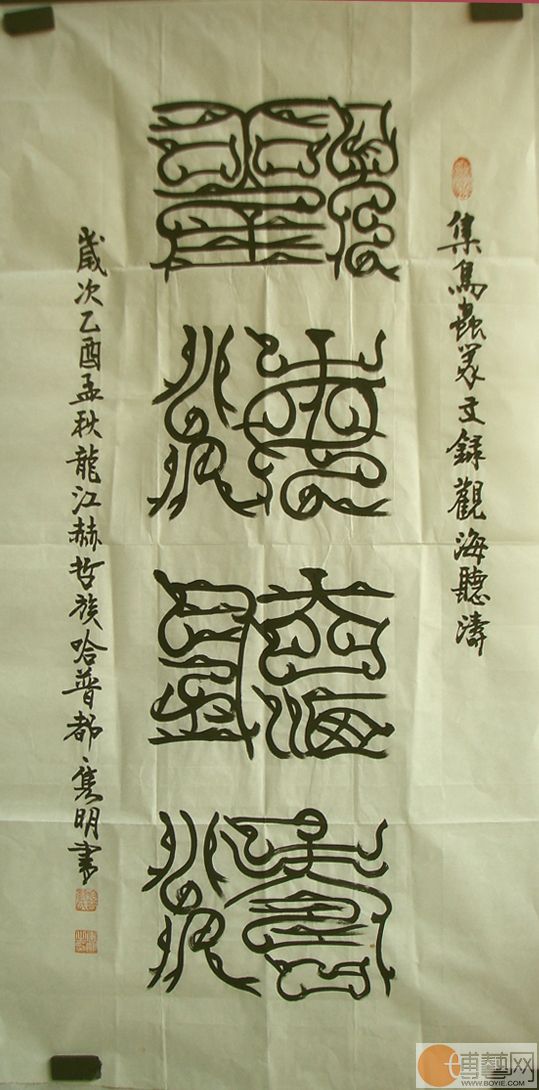 集鳥蟲篆文錄觀海聽濤
觀海聽濤
歲次乙酉孟秋龍江赫哲族哈普都隽明書
博藝网
WWW.BOYIE.COM